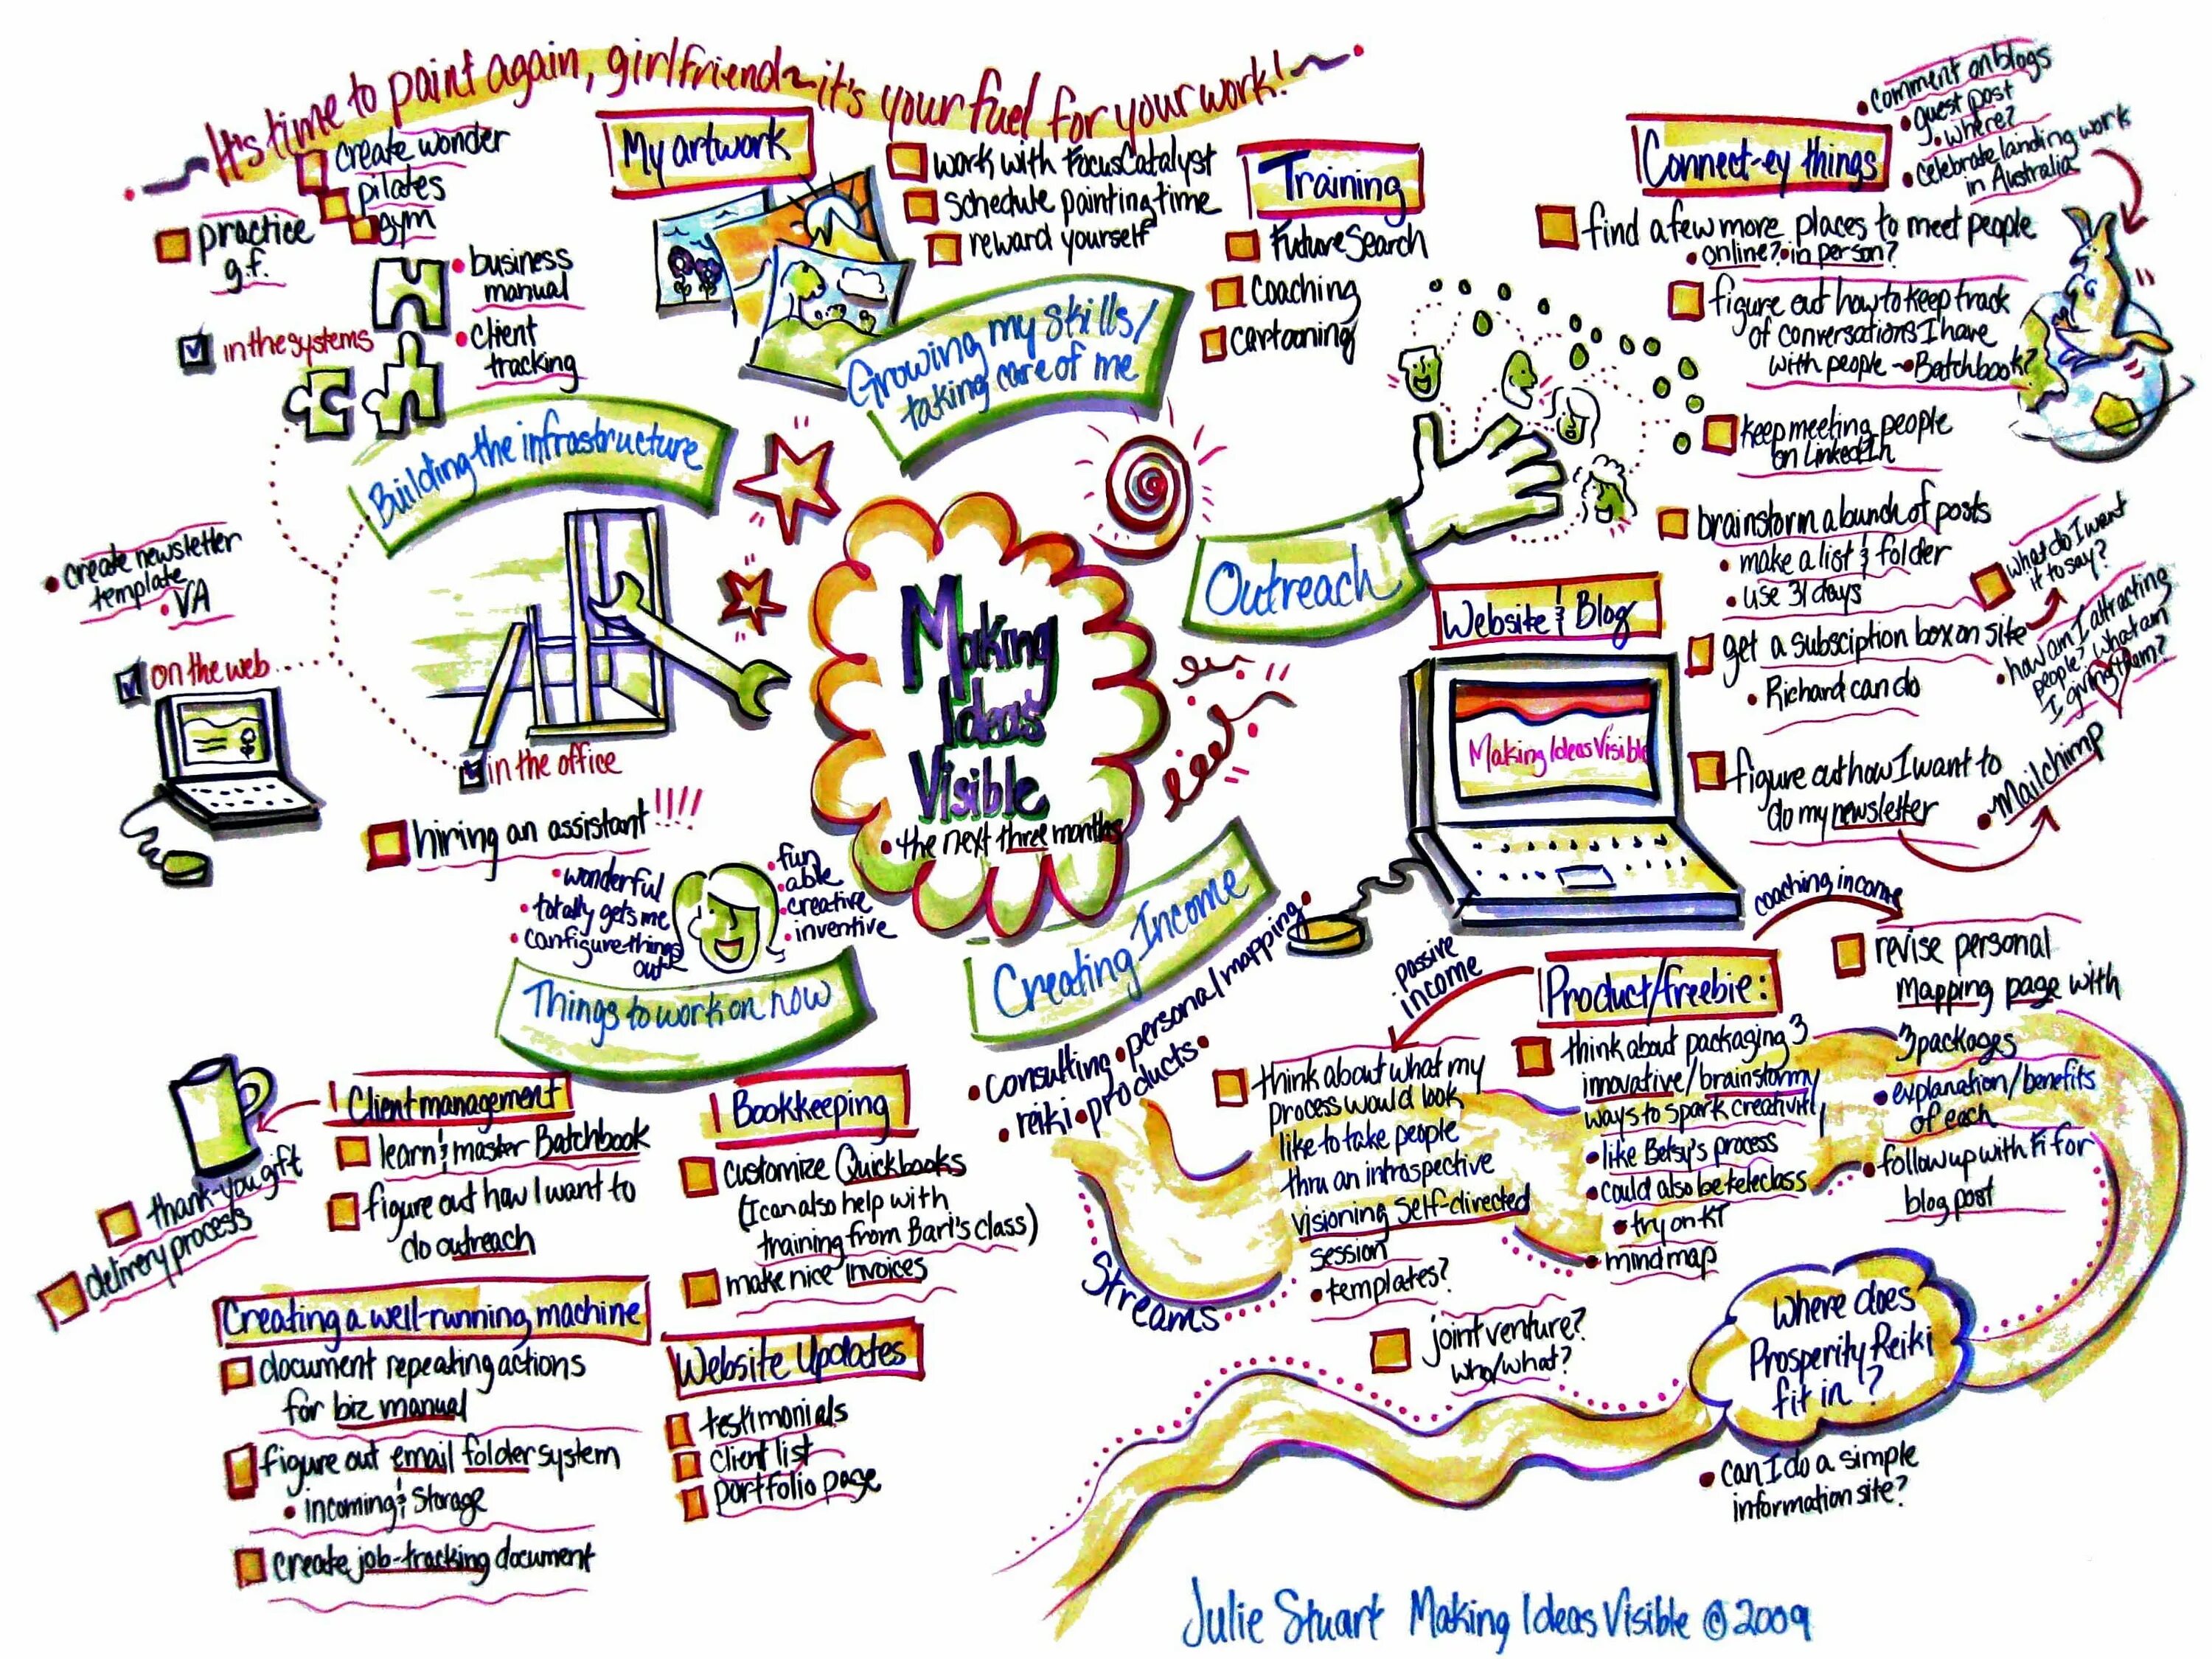 It's time to paint again, girlfriend~it's your fuel for your work!
create wonder
pilates
gym
practice
g.f.
in the systems
• business
manual
• client
tracking
Building the infrastructure
• create newsletter
template
• VA
on the web
in the office
hiring an assistant !!!!
• wonderful
• totally gets me
• configure things
out
• fun
• able
• creative
• inventive
My artwork
work with FocusCatalyst
schedule painting time
reward yourself
Training
FutureSearch
Coaching
cartooning
Growing my skills/
taking care of me
Making
Ideas
Visible
• the next three months
Outreach
Connect-ey things
• comment on blogs
• guest post
• where?
• celebrate landing work
in Australia
find a few more places to meet people
• online? • in person?
figure out how to keep track
of conversations I have
with people ~ Batchbook?
keep meeting people
on LinkedIn
Website & Blog
Making Ideas Visible
brainstorm a bunch of posts
• make a list & folder
• use 31 days
get a subsciption box on site
• Richard can do
what do I want
it to say?
• how am I attracting
people? what am
I giving them?
figure out how I want to
do my newsletter
• Mailchimp
Creating Income
• consulting • personal mapping •
• reiki • products •
Streams
passive
income
coaching income
Product/freebie:
think about what my
process would look
like to take people
thru an introspective
visioning self-directed
session
• templates?
think about packaging 3
innovative/brainstormy
ways to spark creativity
• like Betsy's process
• could also be teleclass
• try on KT
• mind map
revise personal
mapping page with
3 packages
• explanation/benefits
of each
• follow up with Fi for
blog post
joint venture?
who/what?
Where does
Prosperity Reiki
fit in?
• can I do a simple
information site?
Things to work on now
Client management
learn & master Batchbook
figure out how I want to
do outreach
thank-you gift
delivery process
Bookkeeping
customize Quickbooks
(I can also help with
training from Bari's class)
make nice invoices
Creating a well-running machine
document repeating actions
for biz manual
figure out email folder system
• incoming & storage
create job-tracking document
Website Updates
testimonials
client list
portfolio page
Julie Stuart Making Ideas Visible © 2009